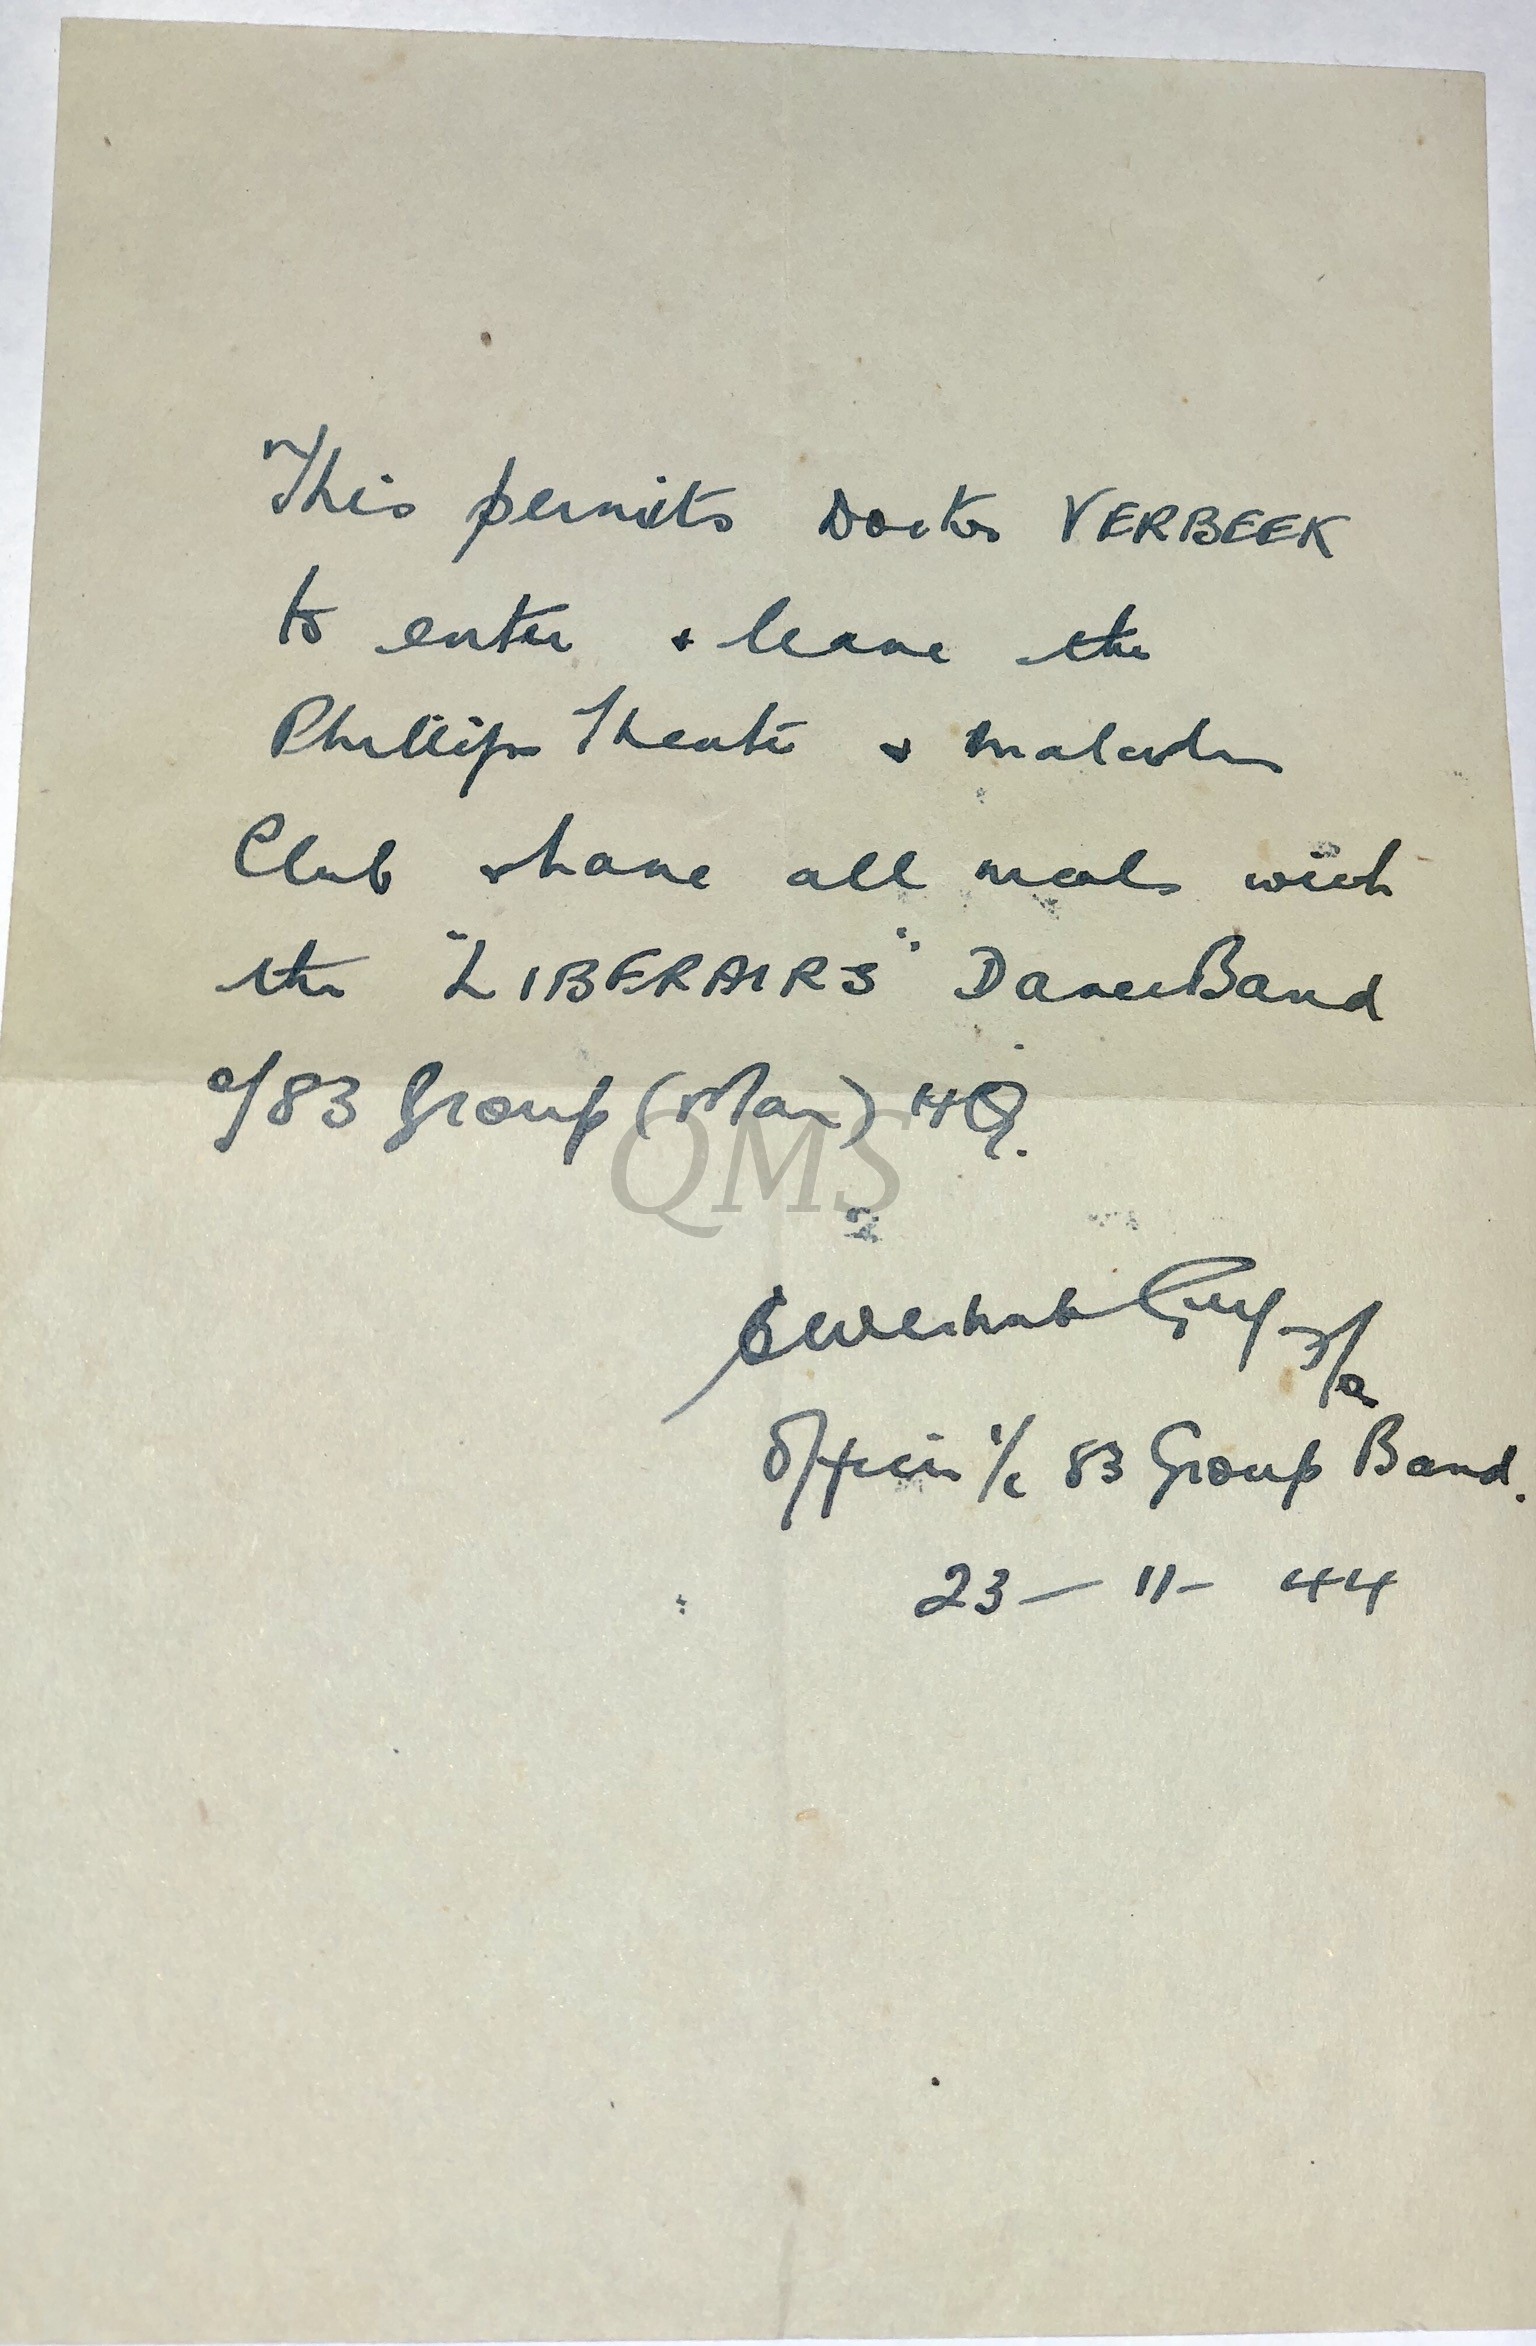 This permits Doctor VERBEEK
to enter + leave the
Phillips Theatre + Malcolm
Club + have all meals with
the "LIBERAIRS" Dance Band
of 83 Group (Main) HQ.
QMS
F/O
Officer i/c 83 Group Band.
23 - 11 - 44